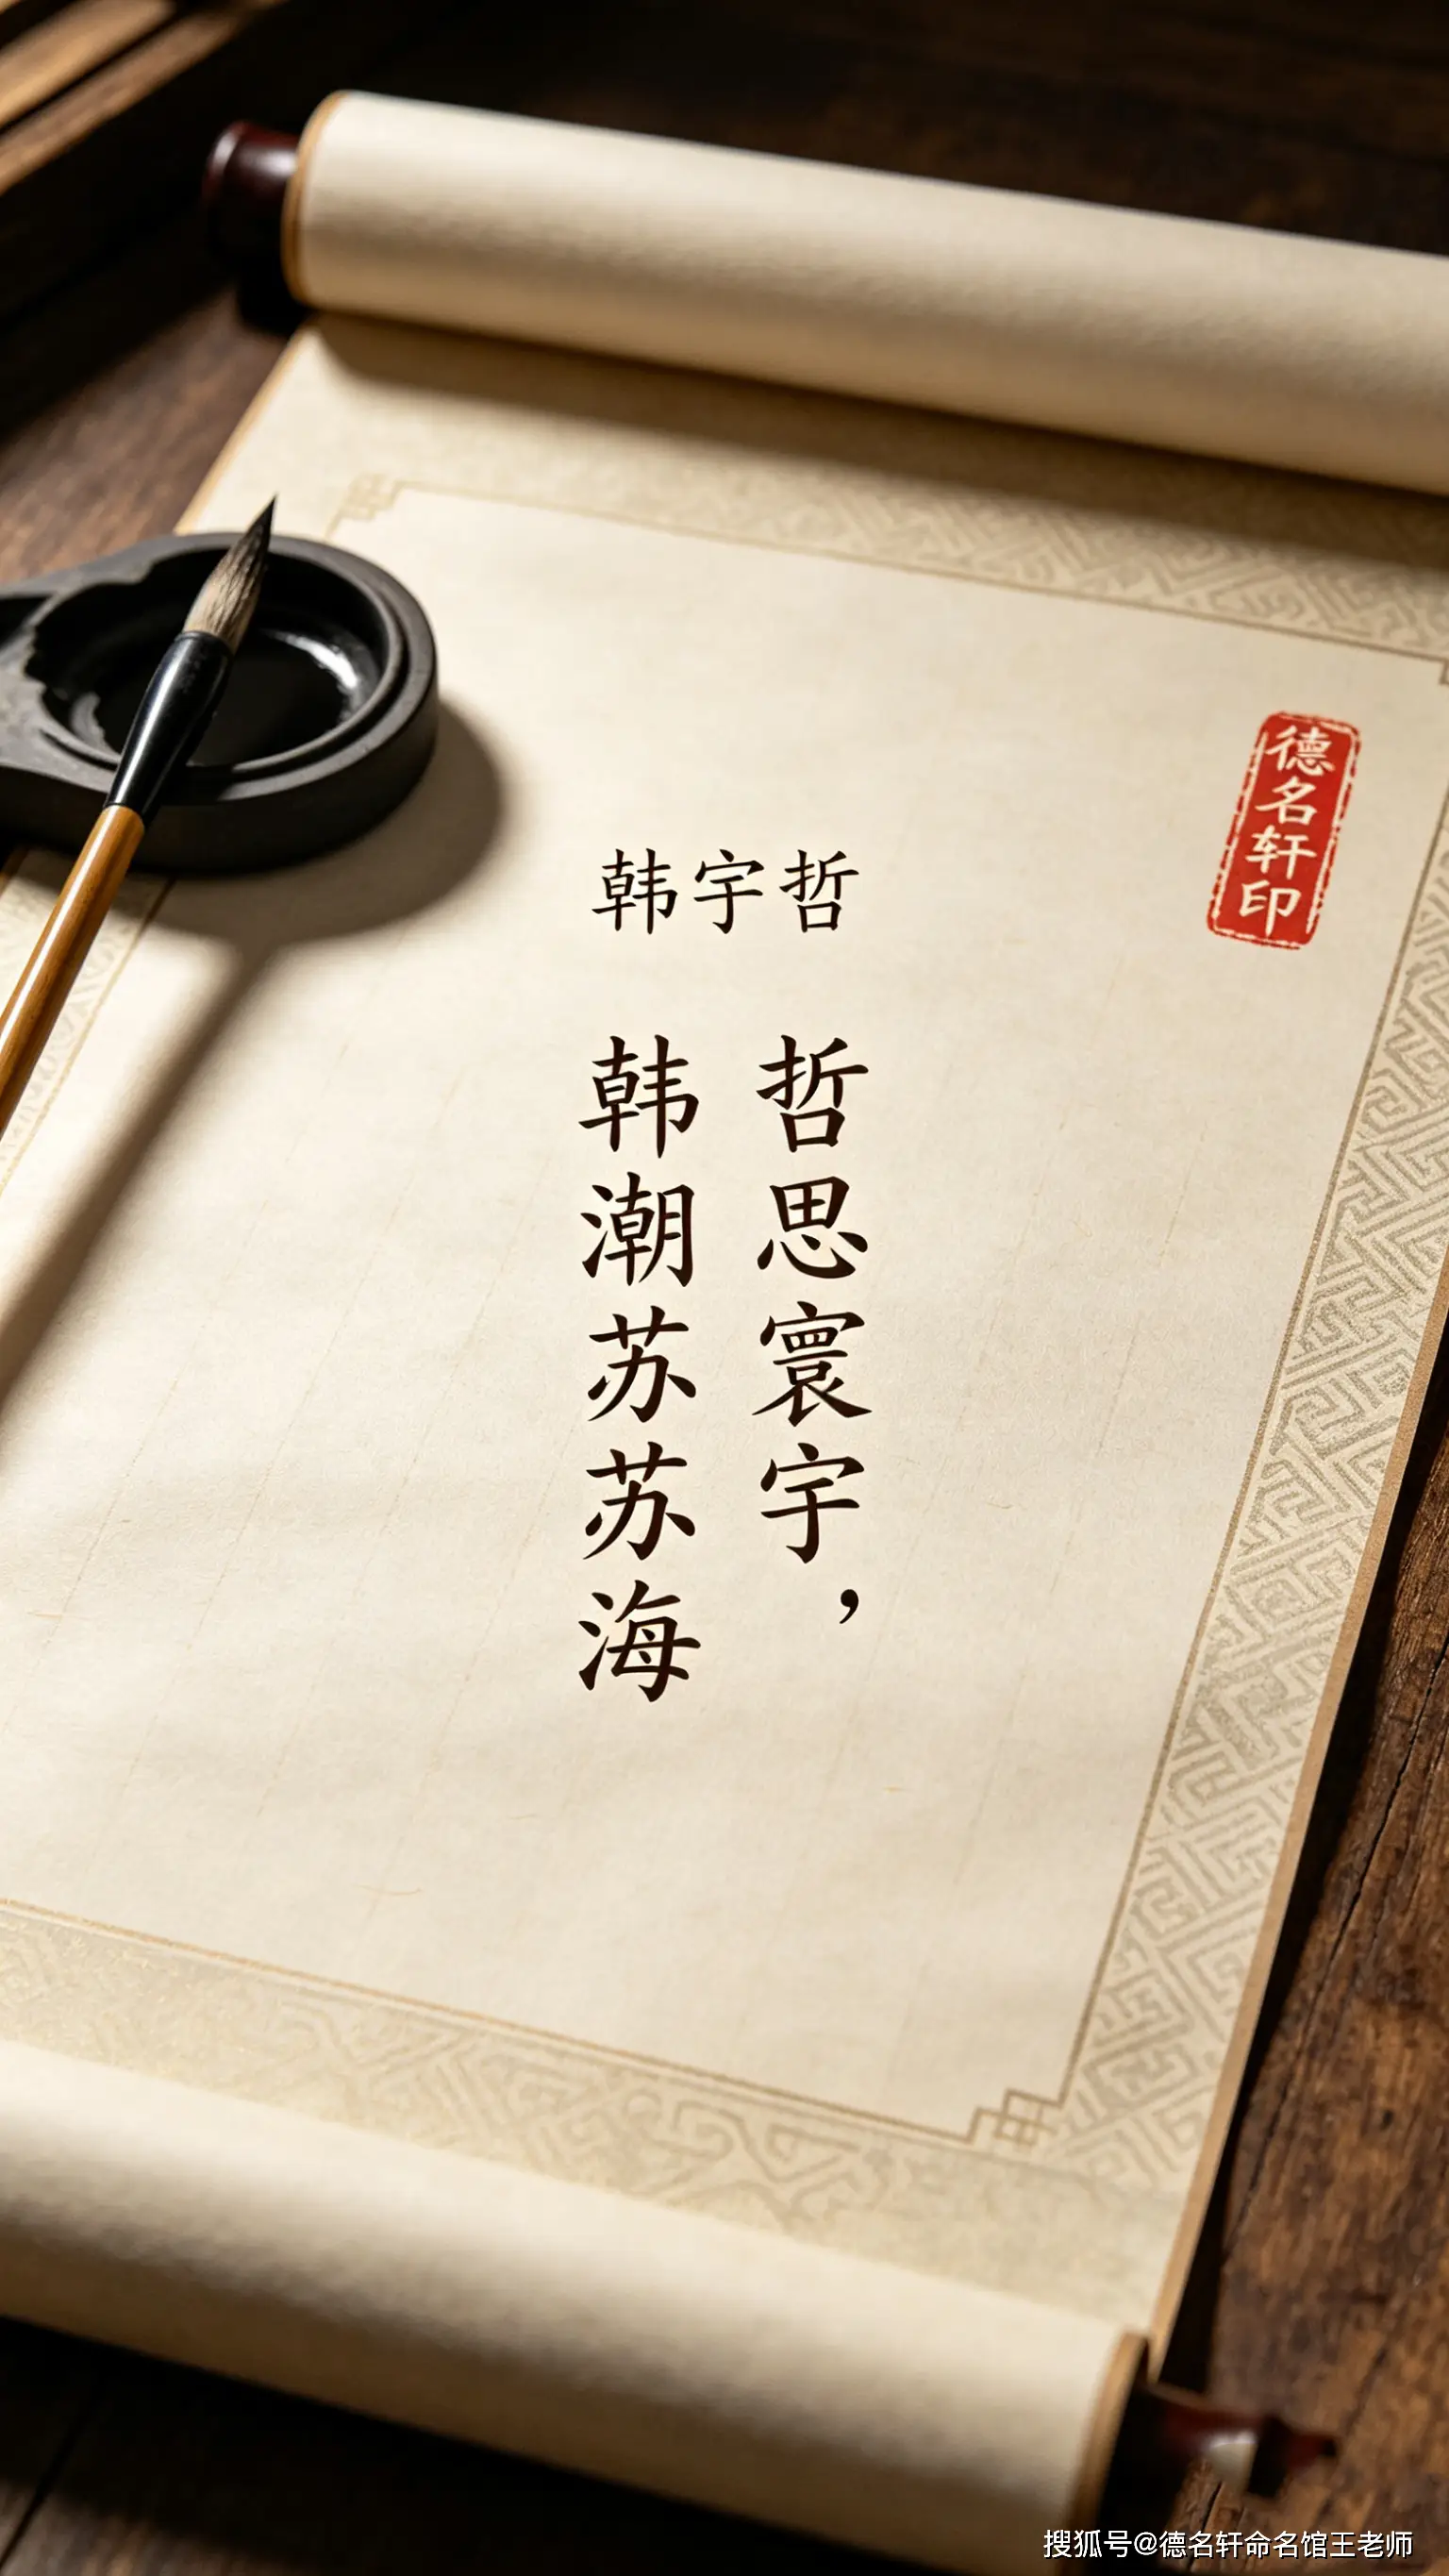 韩宇哲
哲思寰宇，
韩潮苏苏海
德名轩印
搜狐号@德名轩命名馆王老师